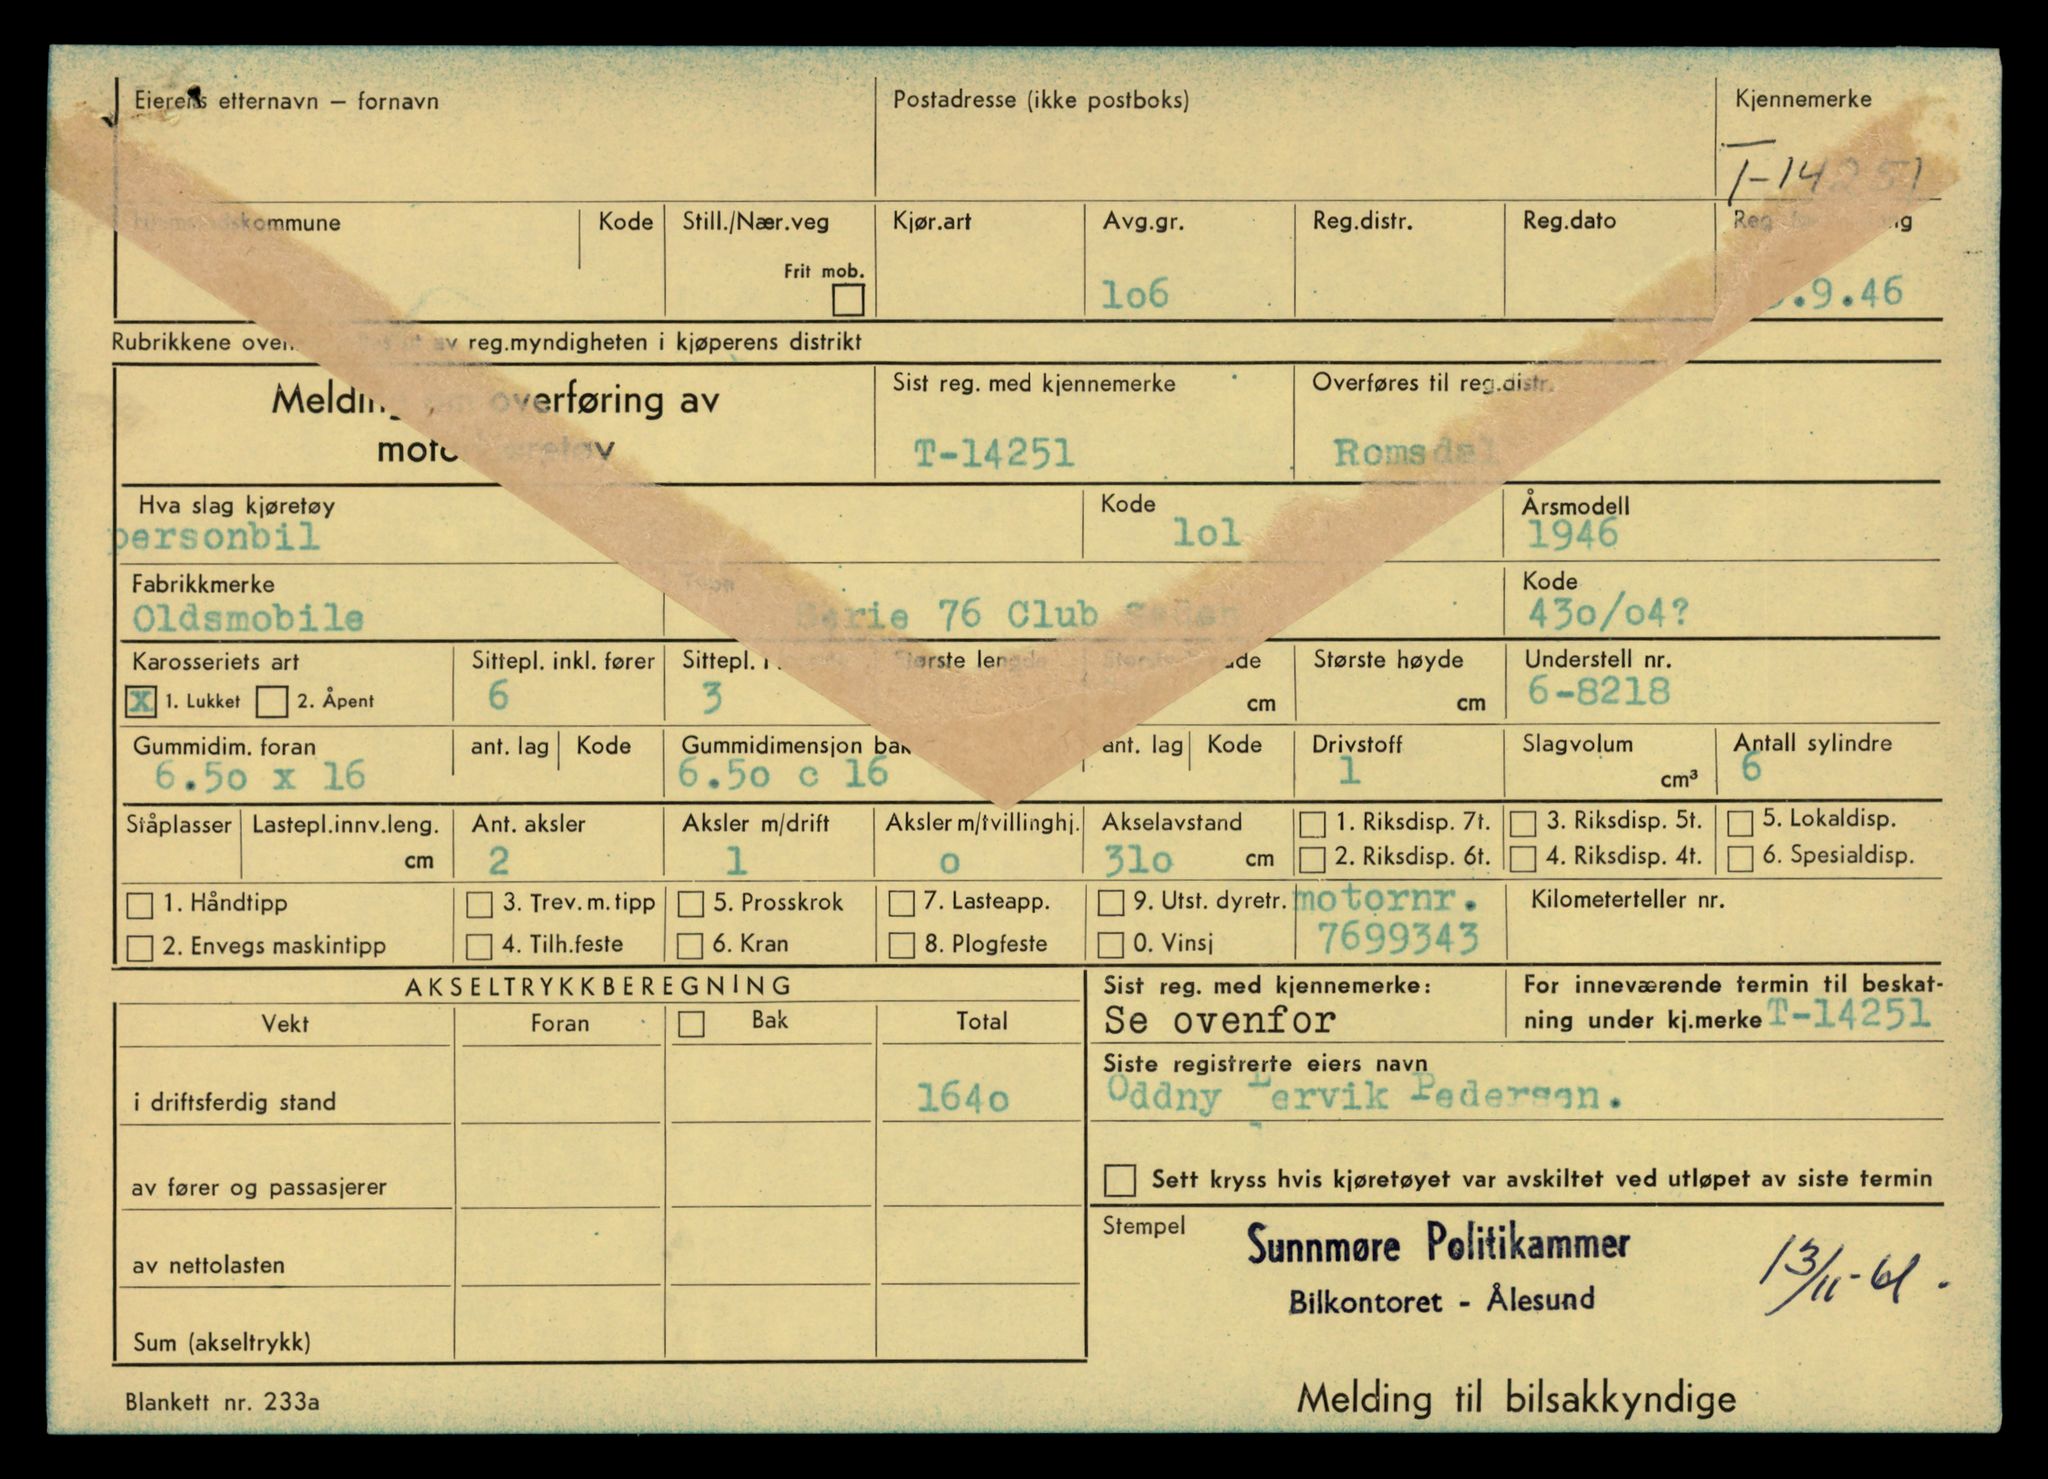 Eierens etternavn – fornavn Postadresse (ikke postboks) Kjennemerke
T-14251
Kode Still./Nær.veg Kjør.art Avg.gr. Reg.distr. Reg.dato
Frit mob.
1o6 .9.46
Rubrikkene av reg.myndigheten i kjøperens distrikt
Melding om overføring av Sist reg. med kjennemerke Overføres til reg.distr.
motorkjøretøy T-14251 Romsdal
Hva slag kjøretøy Kode Årsmodell
personbil 1o1 1946
Fabrikkmerke Type Kode
Oldsmobile Serie 76 Club Sedan 43o/o4?
Karosseriets art Sittepl. inkl. fører Sittepl. Største lengde Største høyde Understell nr.
X 1. Lukket 2. Åpent 6 3 cm cm 6-8218
Gummidim. foran ant. lag Kode Gummidimensjon bak ant. lag Kode Drivstoff Slagvolum Antall sylindre
6.5o x 16 6.5o c 16 1 cm³ 6
Ståplasser Lastepl.innv.leng. Ant. aksler Aksler m/drift Aksler m/tvillinghj. Akselavstand 1. Riksdisp. 7t. 3. Riksdisp. 5t. 5. Lokaldisp.
cm 2 1 o 31o cm 2. Riksdisp. 6t. 4. Riksdisp. 4t. 6. Spesialdisp.
1. Håndtipp 3. Trev. m. tipp 5. Prosskrok 7. Lasteapp. 9. Utst. dyretr. motornr. Kilometerteller nr.
2. Envegs maskintipp 4. Tilh.feste 6. Kran 8. Plogfeste 0. Vinsj 7699343
AKSELTRYKKBEREGNING Sist reg. med kjennemerke: For inneværende termin til beskat-
Vekt Foran Bak Total Se ovenfor ning under kj.merke T-14251
Siste registrerte eiers navn
i driftsferdig stand 164o Oddny Lervik Pedersen.
av fører og passasjerer Sett kryss hvis kjøretøyet var avskiltet ved utløpet av siste termin
Stempel Sunnmøre Politikammer 13/11-61.
av nettolasten Bilkontoret - Ålesund
Sum (akseltrykk)
Blankett nr. 233a Melding til bilsakkyndige